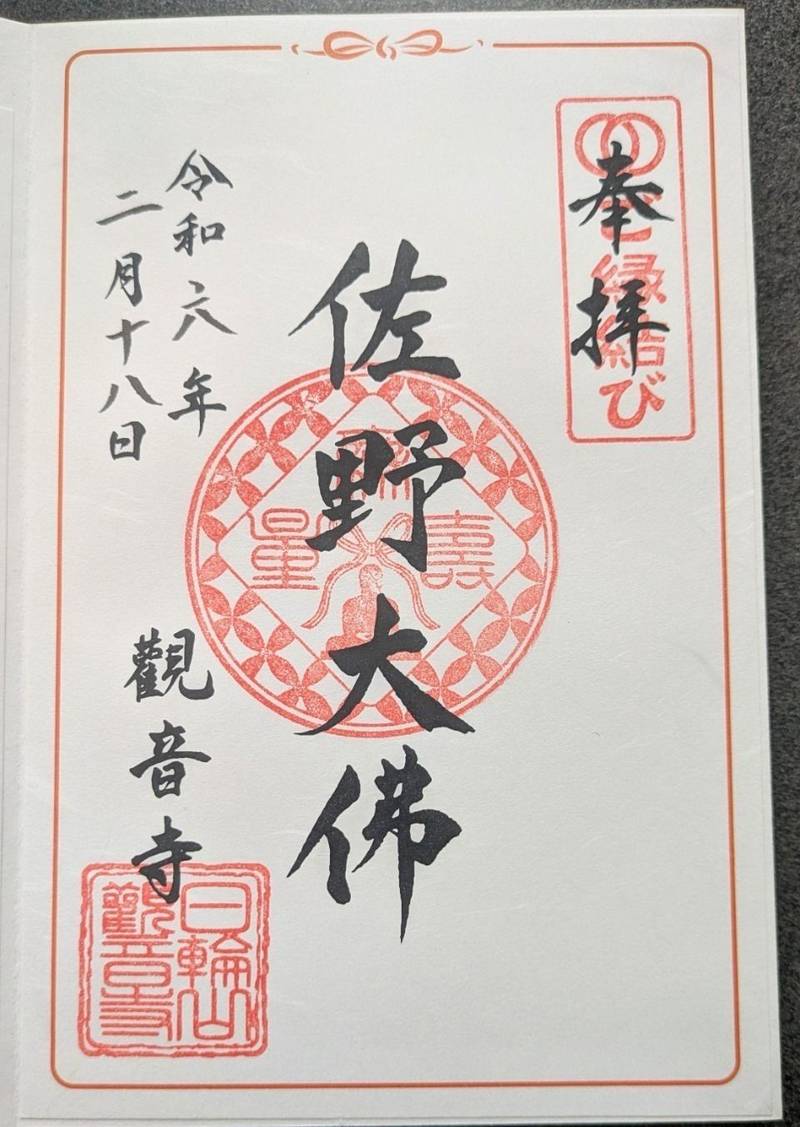 奉拝
ご縁結び
佐野大佛
無量壽
令和六年
二月十八日
觀音寺
日輪山
觀音寺